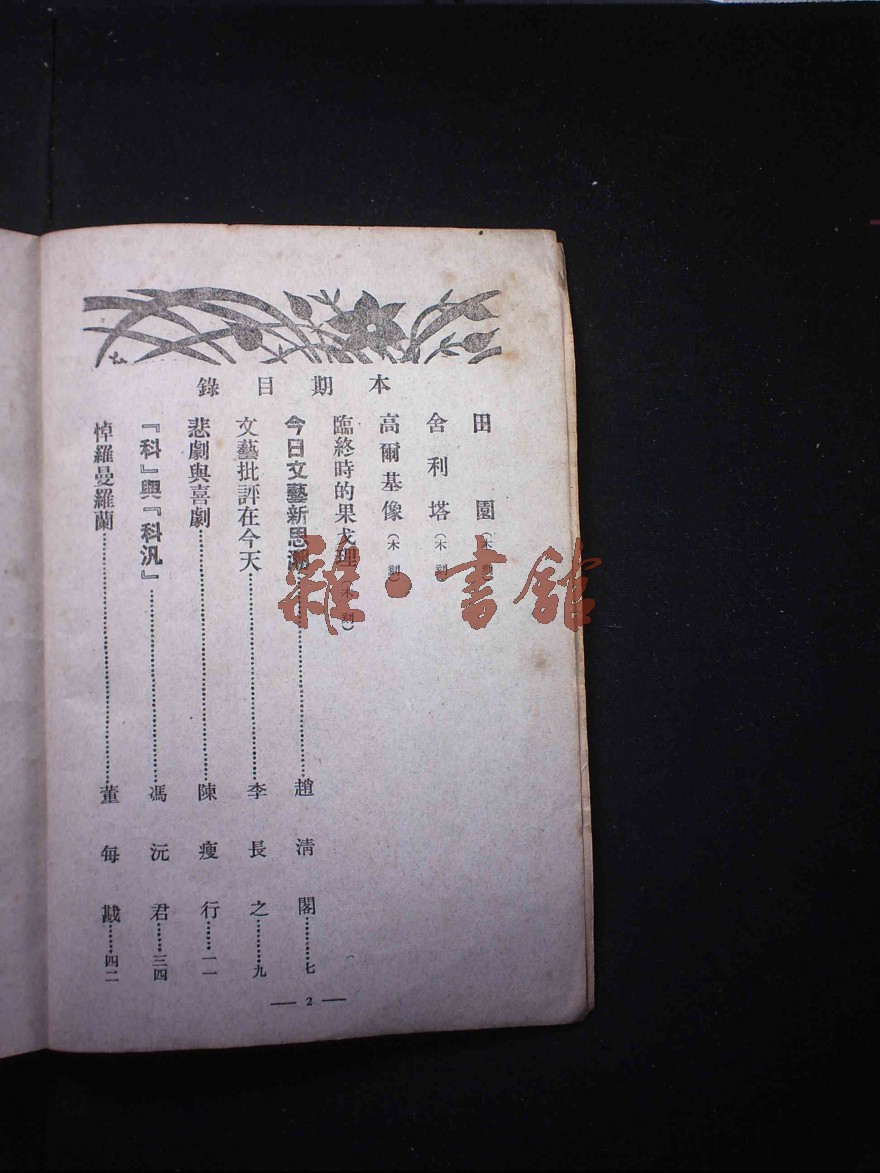 本期目錄
田園（木刻）
舍利塔（木刻）
高爾基像（木刻）
臨終時的果戈理（木刻）
今日文藝新思潮……趙清閣……七
文藝批評在今天……李長之……九
悲劇與喜劇……陳瘦行……一一
『科』與『科汎』……馮沅君……三四
悼羅曼羅蘭……董每戡……四二
— 2 —
雜·書館